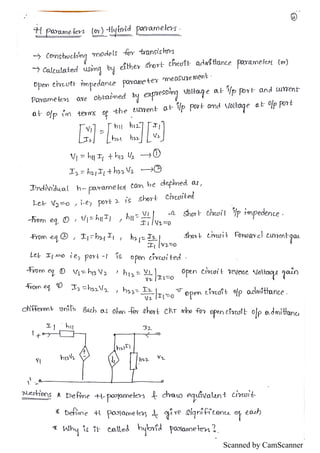 ②
H parameters (or) Hybrid parameters.
→ Constructing models for transistors
→ Calculated using by either short circuit admittance parameters (or)
Open circuit impedance parameter measurement.
Parameters are obtained by expressing voltage at i/p port and current
at o/p in terms of the current at i/p port and voltage at o/p port
[V1 I2] = [h11 h12 h21 h22] [I1 V2]
V1 = h11 I1 + h12 V2 → ①
I2 = h21 I1 + h22 V2 → ②
Individual h-parameters can be defined as,
Let V2=0, i.e, port 2 is short circuited
From eq ①, V1=h11I1, h11 = V1/I1 |V2=0 short circuit i/p impedence.
From eq ②, I2=h21I1, h21 = I2/I1 |V2=0 short circuit forward current gain
Let I1=0 i.e, port-1 is open circuited.
From eq ① V1=h12V2, h12 = V1/V2 |I1=0 open circuit reverse voltage gain
From eq ② I2=h22V2, h22 = I2/V2 |I1=0 open circuit o/p admittance.
different units such as ohm for short CKT mho for open circuit o/p admittance
I1 h11 I2
V1 h12V2 h21I1 h22 V2
1'
Questions * Define H-parameters & draw equivalent circuit.
* Define H parameters & give significance of each
* Why is it called hybrid parameters?
Scanned by CamScanner